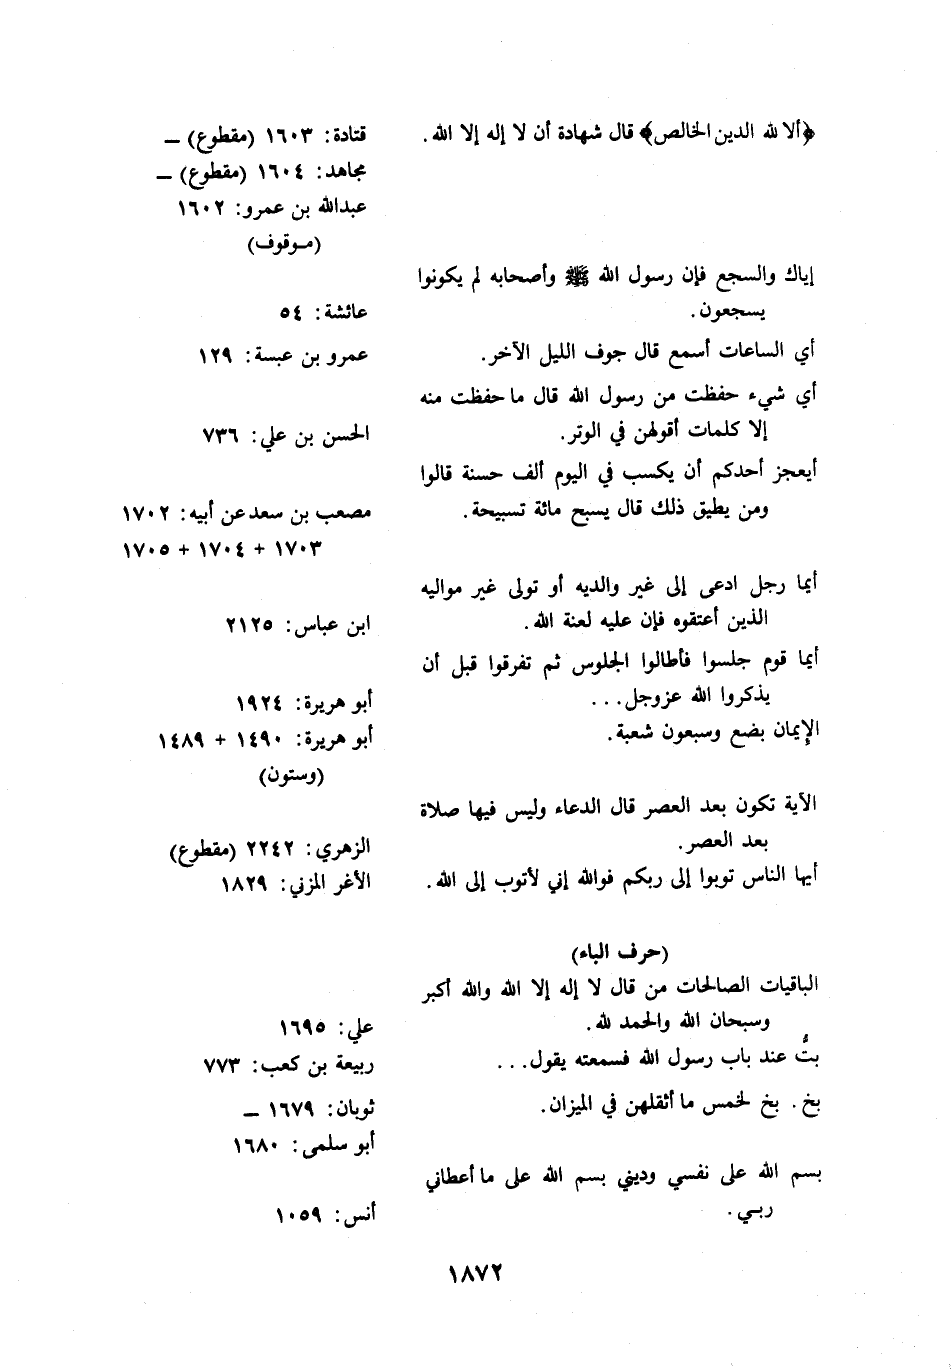 ﴿ألا لله الدين الخالص﴾ قال شهادة أن لا إله إلا الله. قتادة: ١٦٠٣ (مقطوع) —
مجاهد: ١٦٠٤ (مقطوع) —
عبدالله بن عمرو: ١٦٠٢
(موقوف)
إياك والسجع فإن رسول الله ﷺ وأصحابه لم يكونوا
يسجعون. عائشة: ٥٤
أي الساعات أسمع قال جوف الليل الآخر. عمرو بن عبسة: ١٢٩
أي شيء حفظت من رسول الله قال ما حفظت منه
إلا كلمات أقولهن في الوتر. الحسن بن علي: ٧٣٦
أيعجز أحدكم أن يكسب في اليوم ألف حسنة قالوا
ومن يطيق ذلك قال يسبح مائة تسبيحة. مصعب بن سعد عن أبيه: ١٧٠٢
١٧٠٣ + ١٧٠٤ + ١٧٠٥
أيما رجل ادعى إلى غير والديه أو تولى غير مواليه
الذين أعتقوه فإن عليه لعنة الله. ابن عباس: ٢١٢٥
أيما قوم جلسوا فأطالوا الجلوس ثم تفرقوا قبل أن
يذكروا الله عزوجل... أبو هريرة: ١٩٢٤
الإيمان بضع وسبعون شعبة. أبو هريرة: ١٤٩٠ + ١٤٨٩
(وستون)
الآية تكون بعد العصر قال الدعاء وليس فيها صلاة
بعد العصر. الزهري: ٢٢٤٢ (مقطوع)
أيها الناس توبوا إلى ربكم فوالله إني لأتوب إلى الله. الأغر المزني: ١٨٢٩
(حرف الباء)
الباقيات الصالحات من قال لا إله إلا الله والله أكبر
وسبحان الله والحمد لله. علي: ١٦٩٥
بتُّ عند باب رسول الله فسمعته يقول... ربيعة بن كعب: ٧٧٣
بخ. بخ لخمس ما أثقلهن في الميزان. ثوبان: ١٦٧٩ —
أبو سلمى: ١٦٨٠
بسم الله على نفسي وديني بسم الله على ما أعطاني
ربي. أنس: ١٠٥٩
١٨٧٢